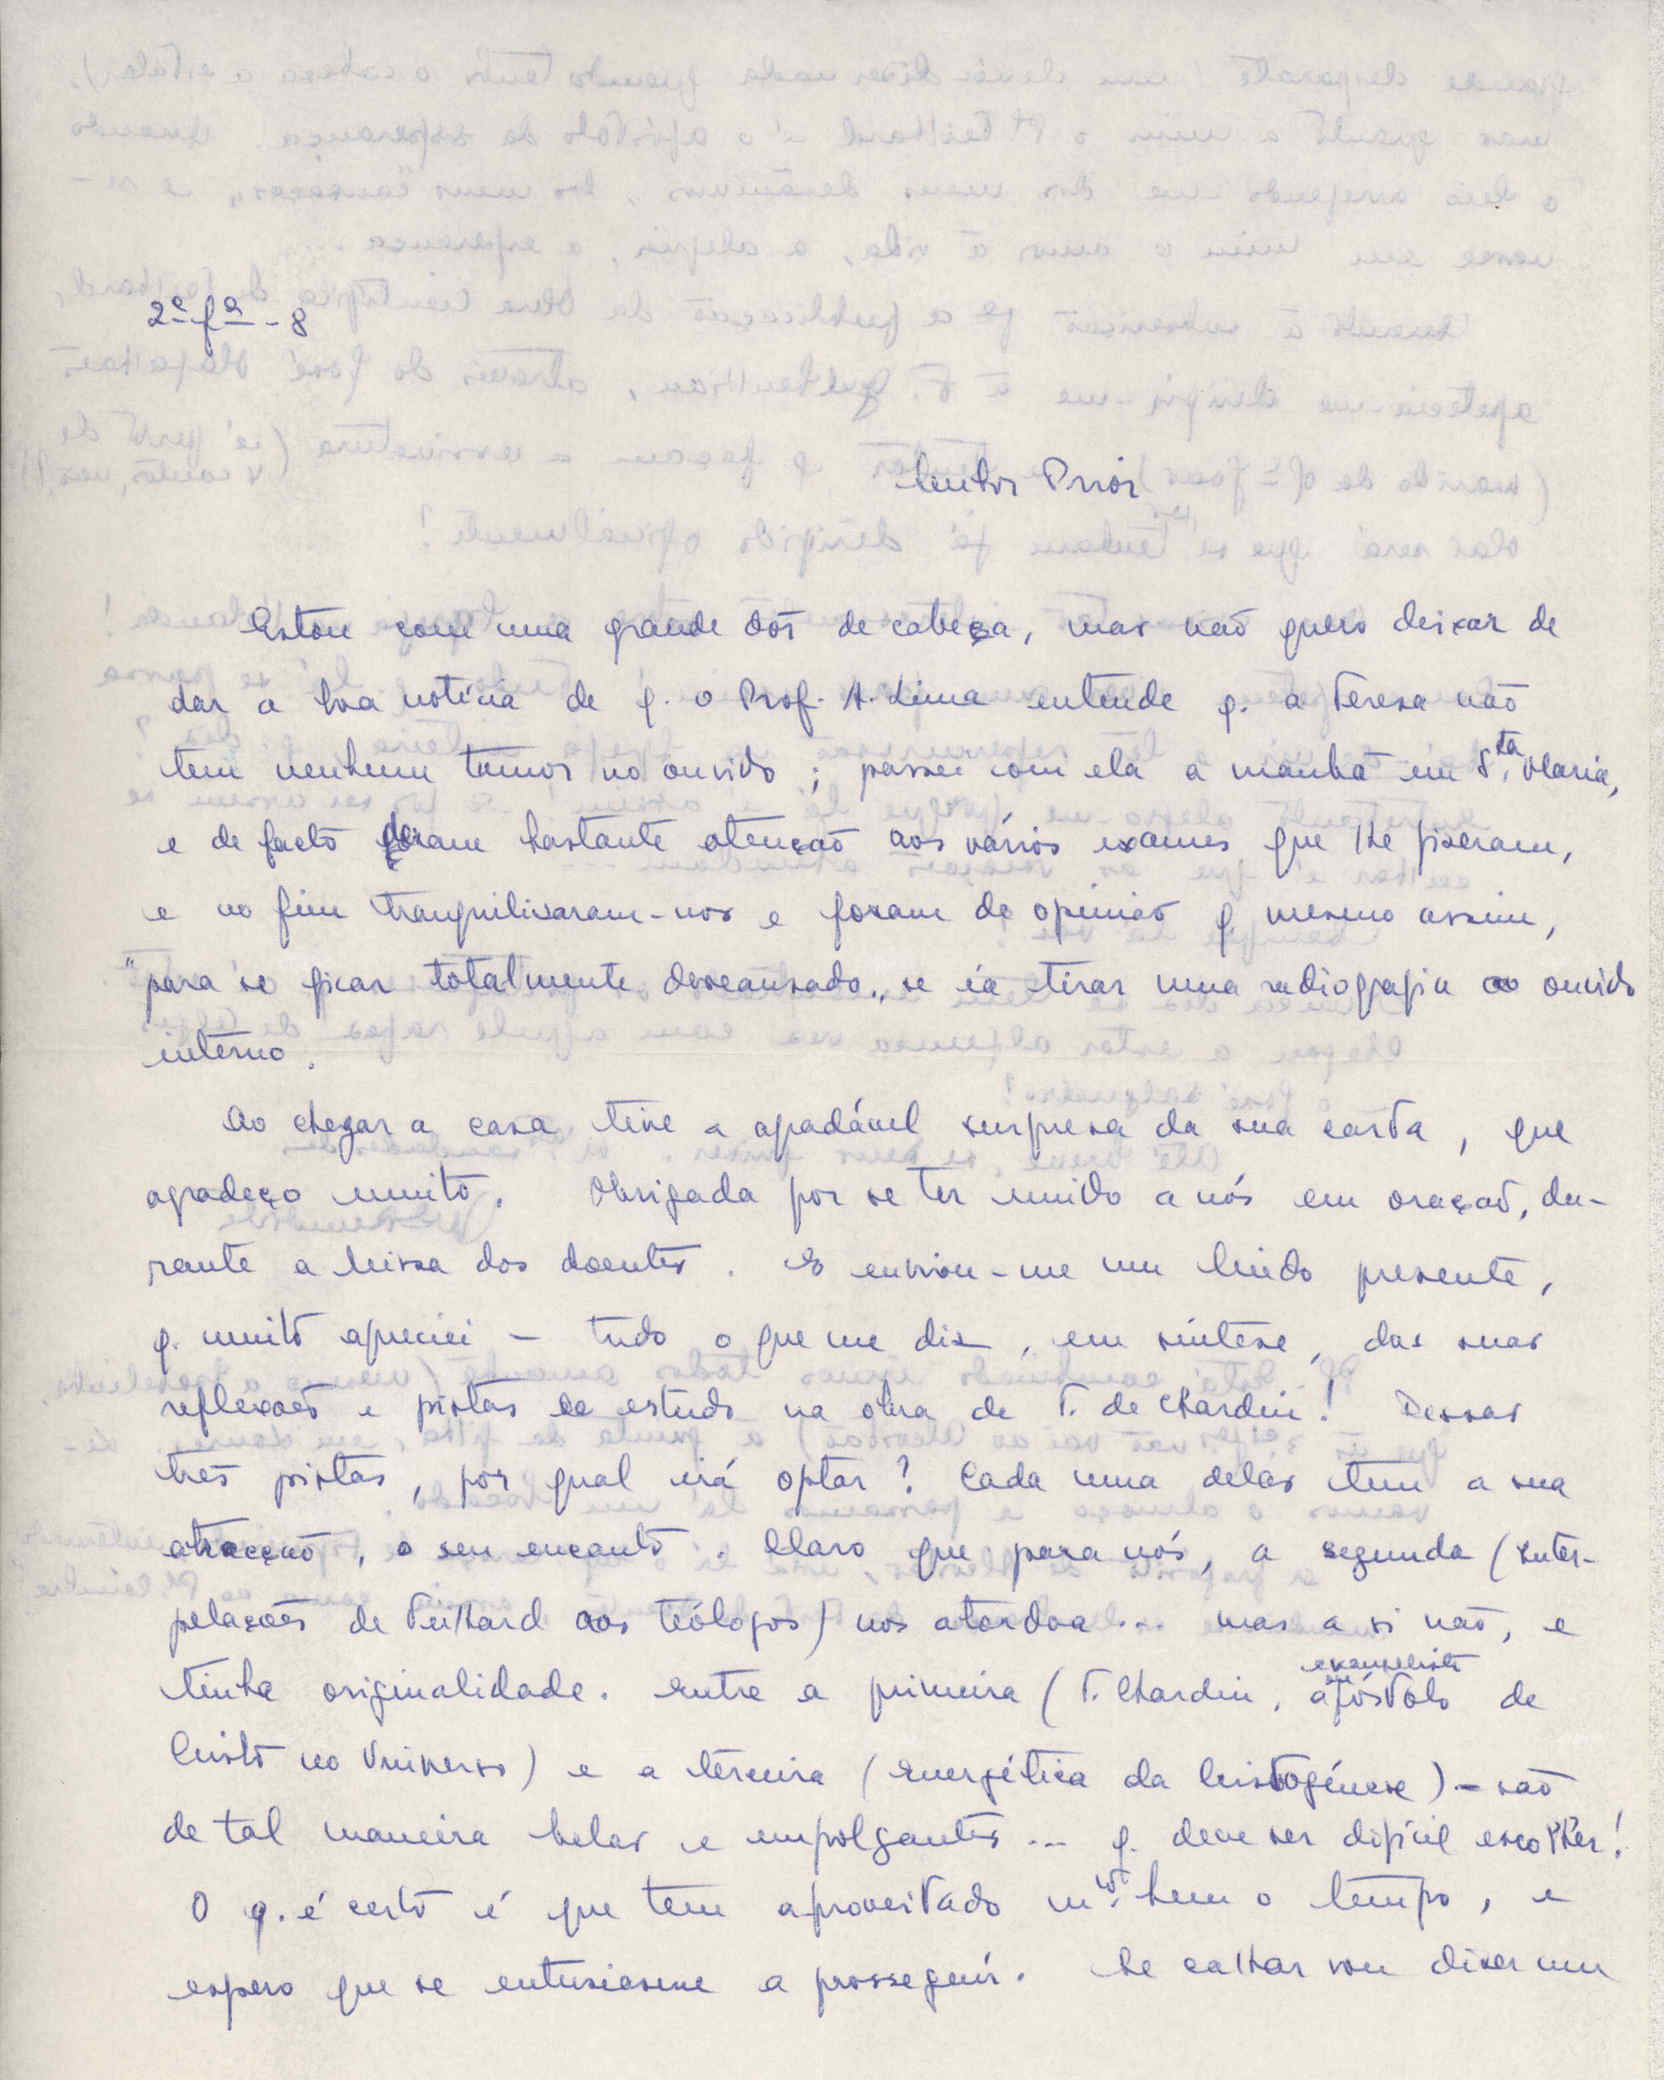 2ª fª - 8
Senhor Prior
Estou com uma grande dôr de cabeça, mas não quero deixar de
dar a boa notícia de q. o Prof. A. Lima entende q. a Teresa não
tem nenhum tumor no ouvido; passei com ela a manhã em S.ta Maria,
e de facto deram bastante atenção aos vários exames que lhe fizeram,
e no fim tranquilizaram-nos e foram de opinião q. mesmo assim,
"para se ficar totalmente descansado" se ia tirar uma radiografia ao ouvido
interno.
Ao chegar a casa tive a agradável surpresa da sua carta, que
agradeço muito. Obrigada por se ter unido a nós em oração, du-
rante a Missa dos doentes. E enviou-me um lindo presente,
q. muito apreciei - tudo o que me diz, em síntese, das suas
reflexões e pistas de estudo na obra de T. de Chardin! Dessas
três pistas, por qual irá optar? Cada uma delas tem a sua
atracção, o seu encanto. Claro que para nós, a segunda (Inter-
pelações de Teilhard aos teólogos) nos atordoa... mas a si não, e
tinha originalidade. Entre a primeira (T. Chardin, apóstolo evangelista de
Cristo no Universo) e a terceira (Energética da Cristogénese) - são
de tal maneira belas e empolgantes... q. deve ser difícil escolher!
O q. é certo é que tem aproveitado m.to bem o tempo, e
espero que se entusiasme a prosseguir. Se calhar vou dizer um